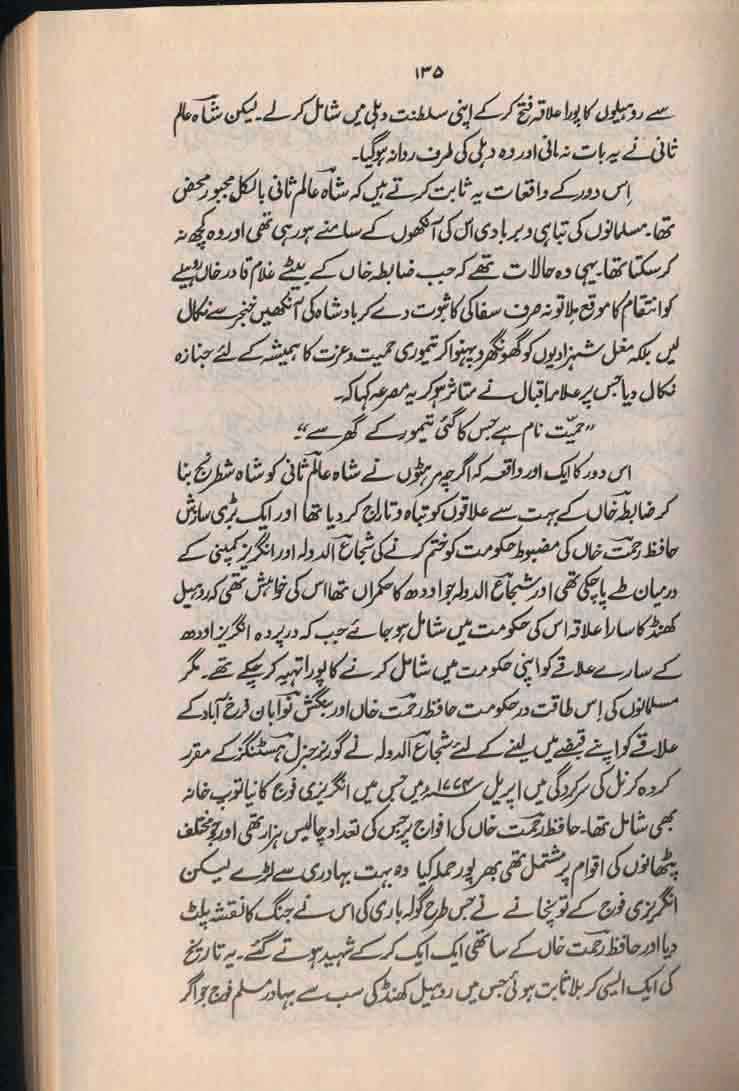 ۱۳۵
سے روہیلوں کا پورا علاقہ فتح کر کے اپنی سلطنت دہلی میں شامل کر لے۔ لیکن شاہ عالم
ثانی نے یہ بات نہ مانی اور وہ دہلی کی طرف روانہ ہوگیا۔
اِس دور کے واقعات یہ ثابت کرتے ہیں کہ شاہ عالم ثانی بالکل مجبور محض
تھا۔ مسلمانوں کی تباہی و بربادی اس کی آنکھوں کے سامنے ہو رہی تھی اور وہ کچھ نہ
کر سکتا تھا۔ یہی وہ حالات تھے کہ جب ضابطہ خاں کے بیٹے غلام قادر خاں روہیلے
کو انتقام کا موقع ملا تو نہ صرف سفاکی کا ثبوت دے کر بادشاہ کی آنکھیں خنجر سے نکال
لیں بلکہ مغل شہزادیوں کو گھونگھرو پہنوا کر تیموری حمیت و عزت کا ہمیشہ کے لئے جنازہ
نکال دیا جس پر علامہ اقبال نے متاثر ہو کر یہ مصرعہ کہا کہ۔
”حمیّت نام ہے جس کا گئی تیمور کے گھر سے“۔
اس دور کا ایک اور واقعہ کہ اگرچہ مرہٹوں نے شاہ عالم ثانی کو شاہ شطرنج بنا
کر ضابطہ خاں کے بہت سے علاقوں کو تباہ و تاراج کر دیا تھا اور ایک بڑی سازش
حافظ رحمت خاں کی مضبوط حکومت کو ختم کرنے کی شجاع الدولہ اور انگریز کمپنی کے
درمیان طے پا چکی تھی اور شجاع الدولہ جو اودھ کا حکمراں تھا اس کی خواہش تھی کہ روہیل
کھنڈ کا سارا علاقہ اس کی حکومت میں شامل ہو جائے جب کہ در پردہ انگریز اودھ
کے سارے علاقے کو اپنی حکومت میں شامل کرنے کا پورا تہیہ کر چکے تھے۔ مگر
مسلمانوں کی اِس طاقت در حکومت حافظ رحمت خاں اور بنگش نوابان فرخ آباد کے
علاقے کو اپنے قبضے میں لینے کے لئے شجاع الدولہ نے گورنر جنرل ہسٹنگز کے مقرر
کردہ کرنل کی سرکردگی میں اپریل ۱۷۷۴ء میں جس میں انگریزی فوج کا نیا توپ خانہ
بھی شامل تھا۔ حافظ رحمت خاں کی افواج پر جس کی تعداد چالیس ہزار تھی اور جو مختلف
پٹھانوں کی اقوام پر مشتمل تھی بھرپور حملہ کیا وہ بہت بہادری سے لڑے لیکن
انگریزی فوج کے توپخانے نے جس طرح گولہ باری کی اس نے جنگ کا نقشہ پلٹ
دیا اور حافظ رحمت خاں کے ساتھی ایک ایک کر کے شہید ہوتے گئے۔ یہ تاریخ
کی ایک ایسی کربلا ثابت ہوئی جس میں روہیل کھنڈ کی سب سے بہادر مسلم فوج جو اگر